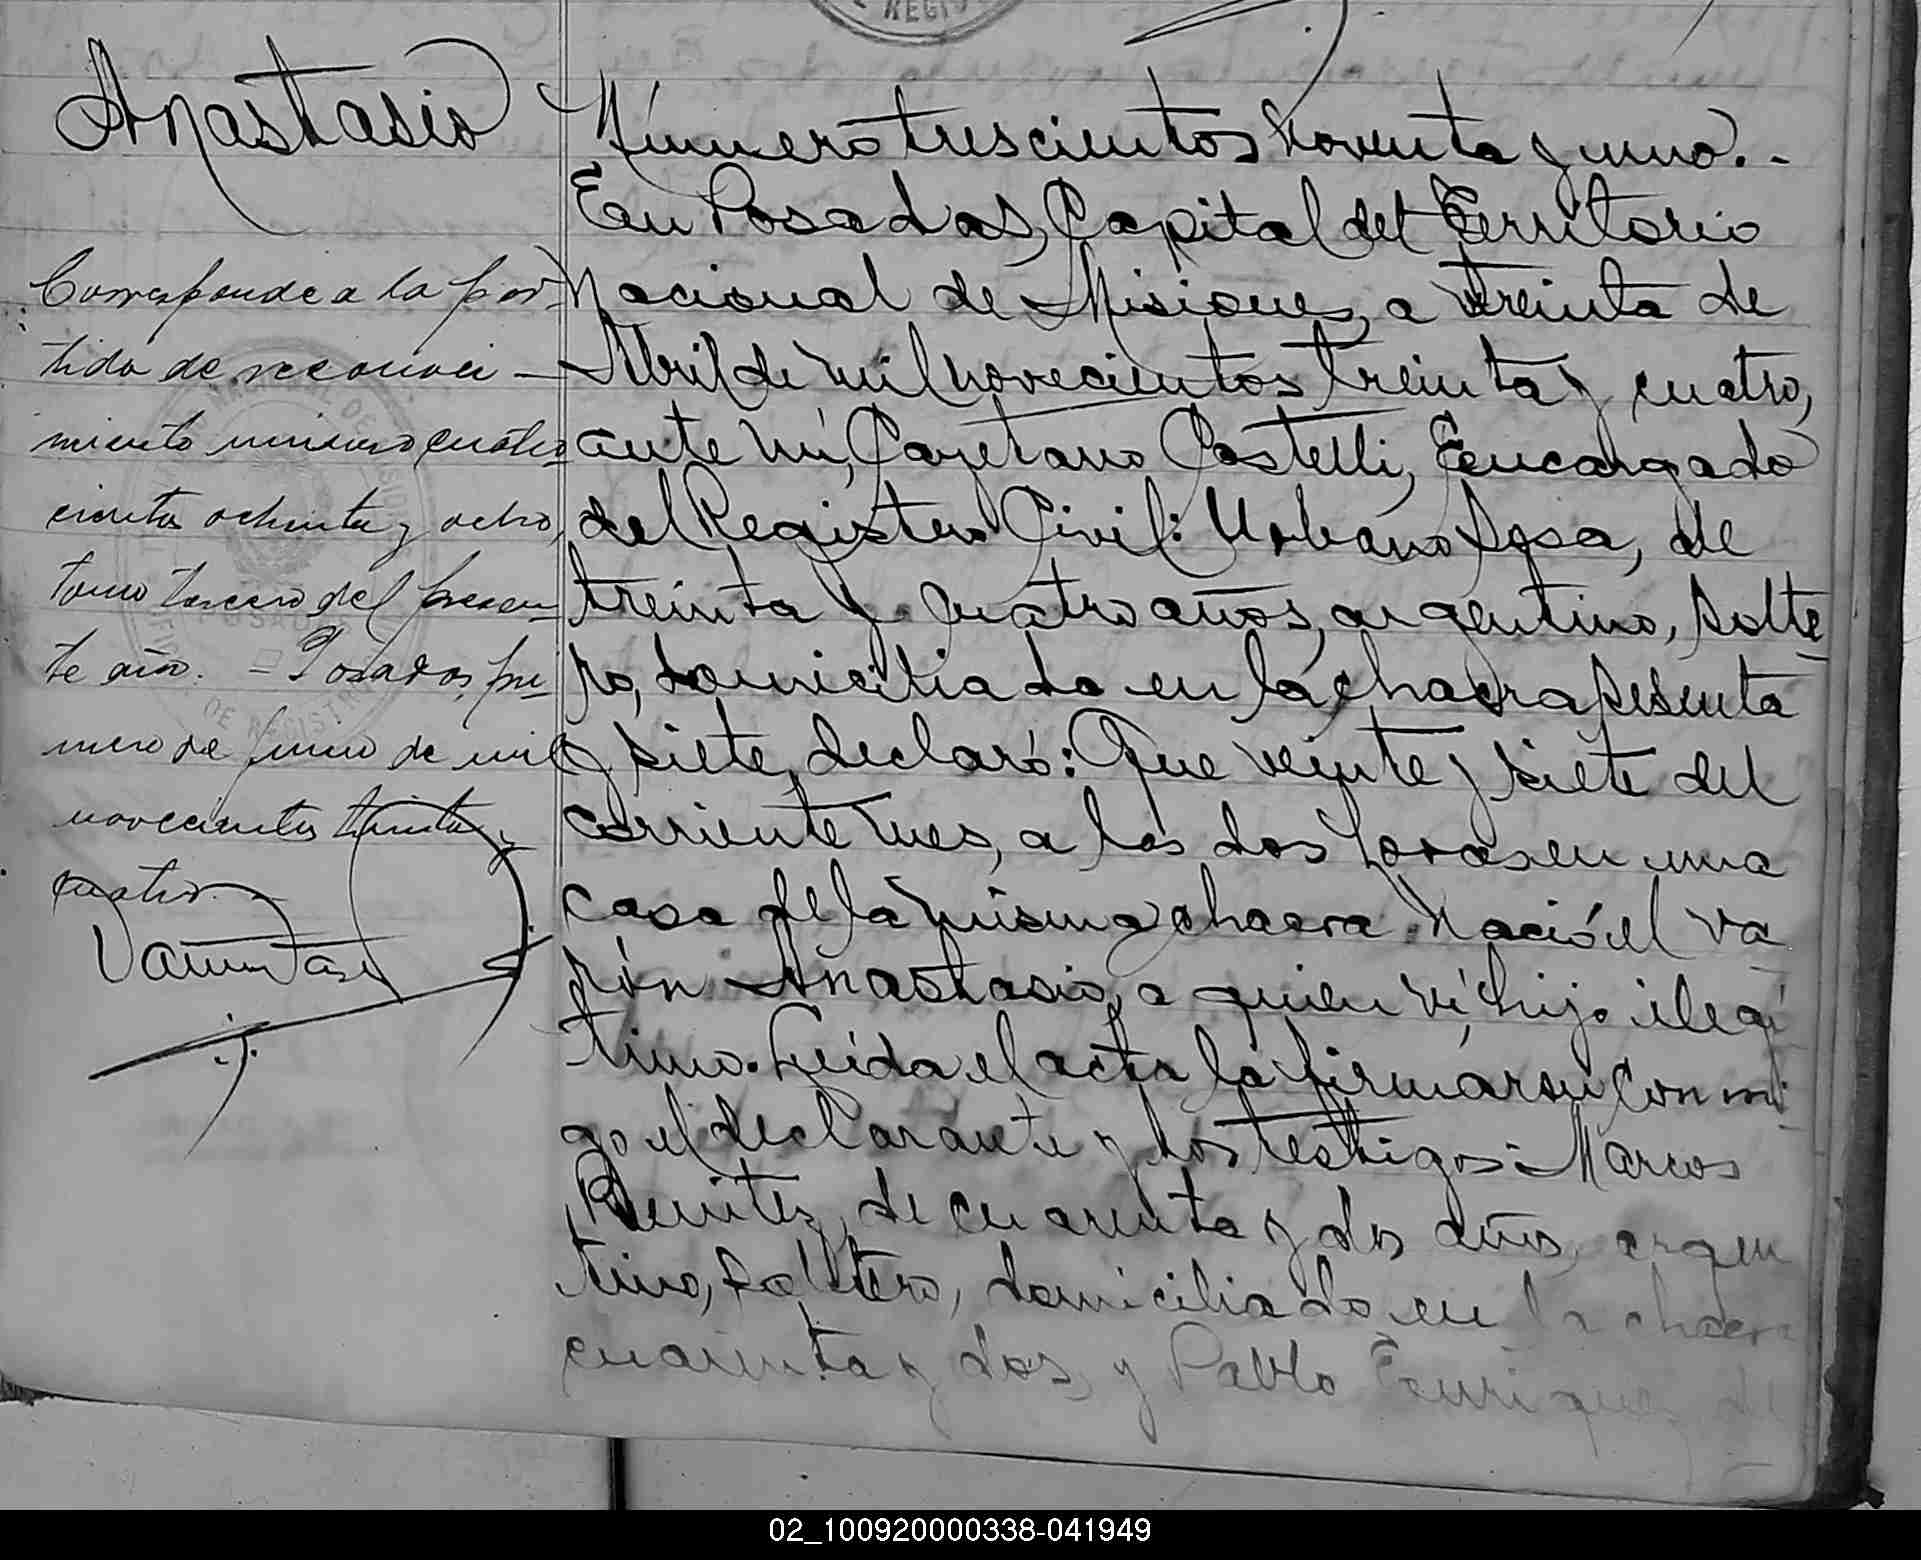 REGIS
Anastasio
Número trescientos noventa y uno.-
En Posadas, Capital del Territorio
Nacional de Misiones, a treinta de
Abril de mil novecientos treinta y cuatro,
ante mí, Cayetano Castelli, Encargado
del Registro Civil: Urbano Sosa, de
treinta y cuatro años, argentino, solte
ro, domiciliado en la chacra sesenta
y siete, declaró: Que veinte y siete del
corriente mes, a las dos horas en una
casa de la misma chacra nació el va
rón Anastasio, a quien ví, hijo ilegí
timo. Leída el acta la firmaron con mi
go el declarante y los testigos: Marcos
Benitez, de cuarenta y dos años, argen
tino, soltero, domiciliado en la chacra
cuarenta y dos, y Pablo Enrique, de
Corresponde a la par-
tida de reconoci-
miento número cuatro-
cientos ochenta y ocho,
tomo tercero del presen-
te año. - Posadas, pri-
mero de Junio de mil
novecientos treinta y
cuatro.-
POSADAS
DE REGISTR
02_100920000338-041949